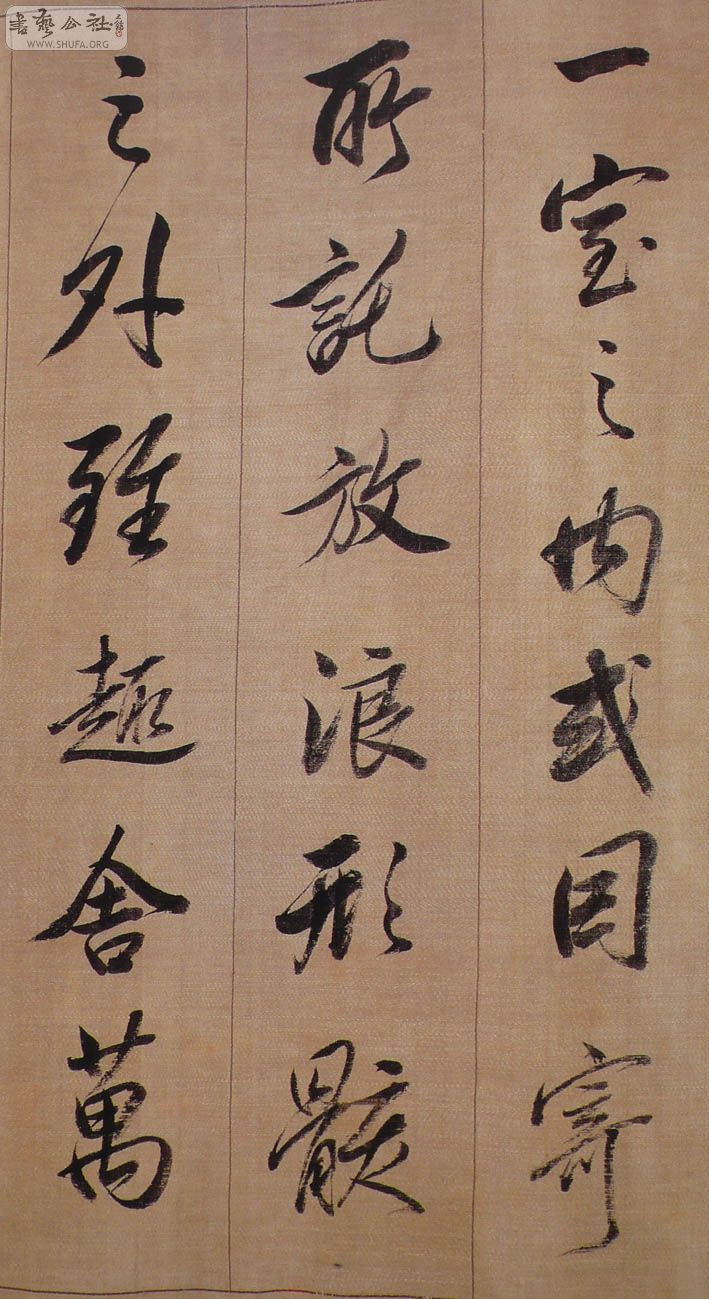 一室之内或因寄
所託放浪形骸
之外雖趣舍萬
書藝公社
WWW.SHUFA.ORG